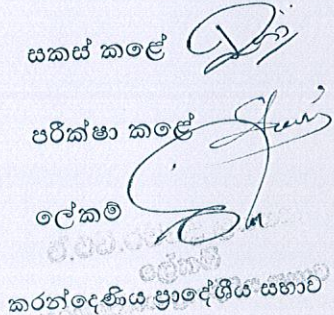 සකස් කළේ
පරීක්ෂා කළේ
ලේකම්
ලේකම්
කරන්දෙණිය ප්‍රාදේශීය සභාව